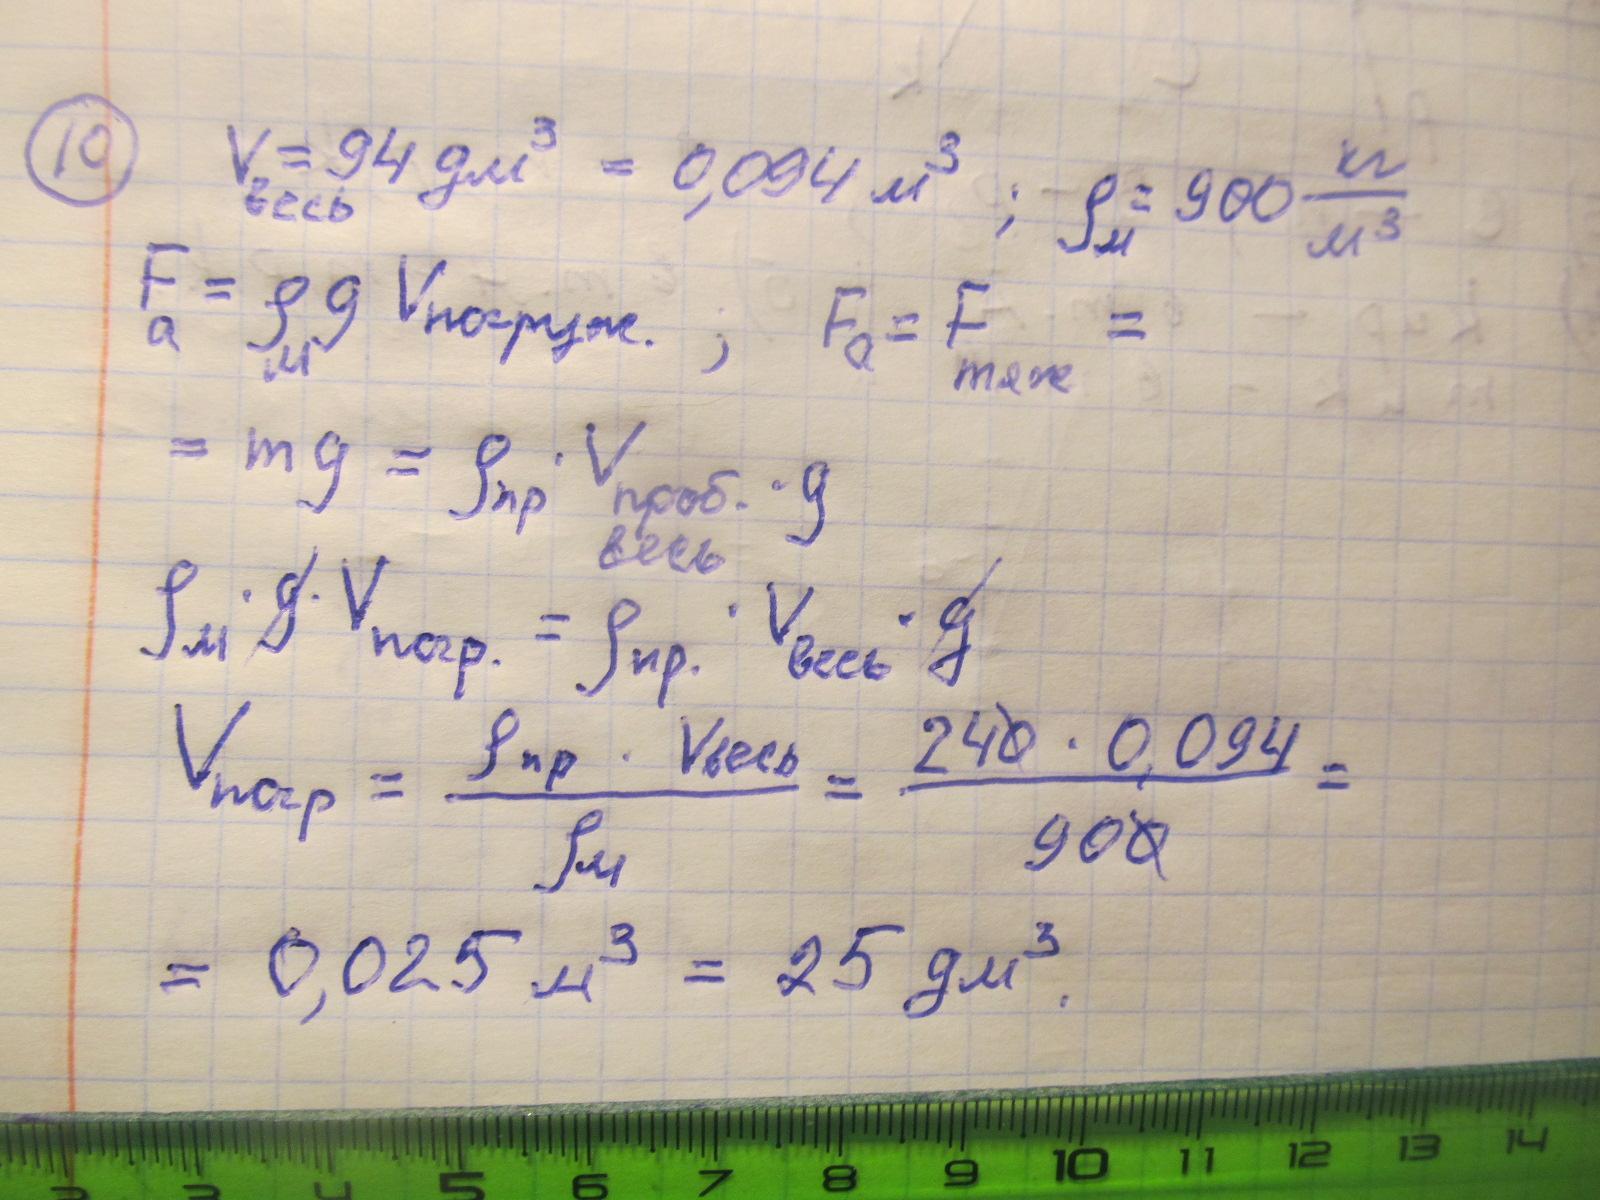 10 V весь = 94 дм³ = 0,094 м³ ; ρм = 900 кг/м³
Fа = ρм g Vпогруж. ; Fа = Fтяж =
= mg = ρпр · Vпроб. весь · g
ρм · g · Vпогр. = ρпр. · Vвесь · g
Vпогр = ρпр · Vвесь / ρм = 240 · 0,094 / 900 =
= 0,025 м³ = 25 дм³.
2 3 4 5 6 7 8 9 10 11 12 13 14